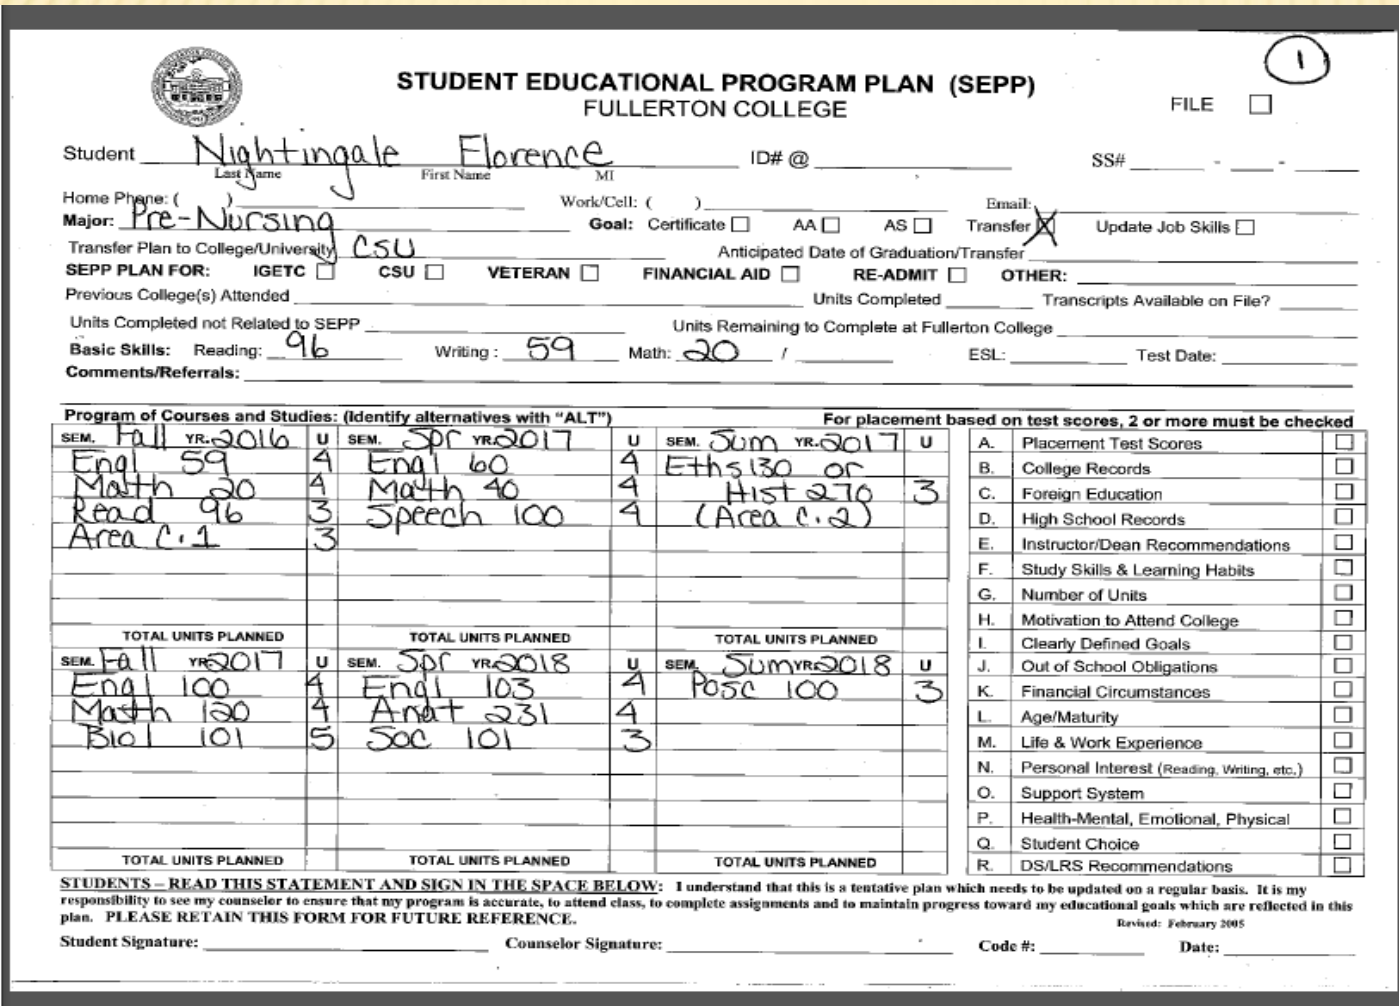 1
STUDENT EDUCATIONAL PROGRAM PLAN (SEPP)
FULLERTON COLLEGE
FILE
Student Nightingale Florence ID# @ SS# - -
Last Name First Name MI
Home Phone: ( ) Work/Cell: ( ) Email:
Major: Pre-Nursing Goal: Certificate AA AS Transfer X Update Job Skills
Transfer Plan to College/University CSU Anticipated Date of Graduation/Transfer
SEPP PLAN FOR: IGETC CSU VETERAN FINANCIAL AID RE-ADMIT OTHER:
Previous College(s) Attended Units Completed Transcripts Available on File?
Units Completed not Related to SEPP Units Remaining to Complete at Fullerton College
Basic Skills: Reading: 96 Writing : 59 Math: 20 / ESL: Test Date:
Comments/Referrals:
Program of Courses and Studies: (Identify alternatives with “ALT”) For placement based on test scores, 2 or more must be checked
SEM. Fall YR. 2016 U SEM. Spr YR. 2017 U SEM. Sum YR. 2017 U
Engl 59 4 Engl 60 4 Eths 130 or
Math 20 4 Math 40 4 Hist 270 3
Read 96 3 Speech 100 4 (Area C.2)
Area C.1 3
TOTAL UNITS PLANNED TOTAL UNITS PLANNED TOTAL UNITS PLANNED
SEM. Fall YR. 2017 U SEM. Spr YR. 2018 U SEM. Sum YR. 2018 U
Engl 100 4 Engl 103 4 Posc 100 3
Math 120 4 Anat 231 4
Biol 101 5 Soc 101 3
TOTAL UNITS PLANNED TOTAL UNITS PLANNED TOTAL UNITS PLANNED
A. Placement Test Scores
B. College Records
C. Foreign Education
D. High School Records
E. Instructor/Dean Recommendations
F. Study Skills & Learning Habits
G. Number of Units
H. Motivation to Attend College
I. Clearly Defined Goals
J. Out of School Obligations
K. Financial Circumstances
L. Age/Maturity
M. Life & Work Experience
N. Personal Interest (Reading, Writing, etc.)
O. Support System
P. Health-Mental, Emotional, Physical
Q. Student Choice
R. DS/LRS Recommendations
STUDENTS – READ THIS STATEMENT AND SIGN IN THE SPACE BELOW: I understand that this is a tentative plan which needs to be updated on a regular basis. It is my
responsibility to see my counselor to ensure that my program is accurate, to attend class, to complete assignments and to maintain progress toward my educational goals which are reflected in this
plan. PLEASE RETAIN THIS FORM FOR FUTURE REFERENCE.
Revised: February 2005
Student Signature: Counselor Signature: Code #: Date: